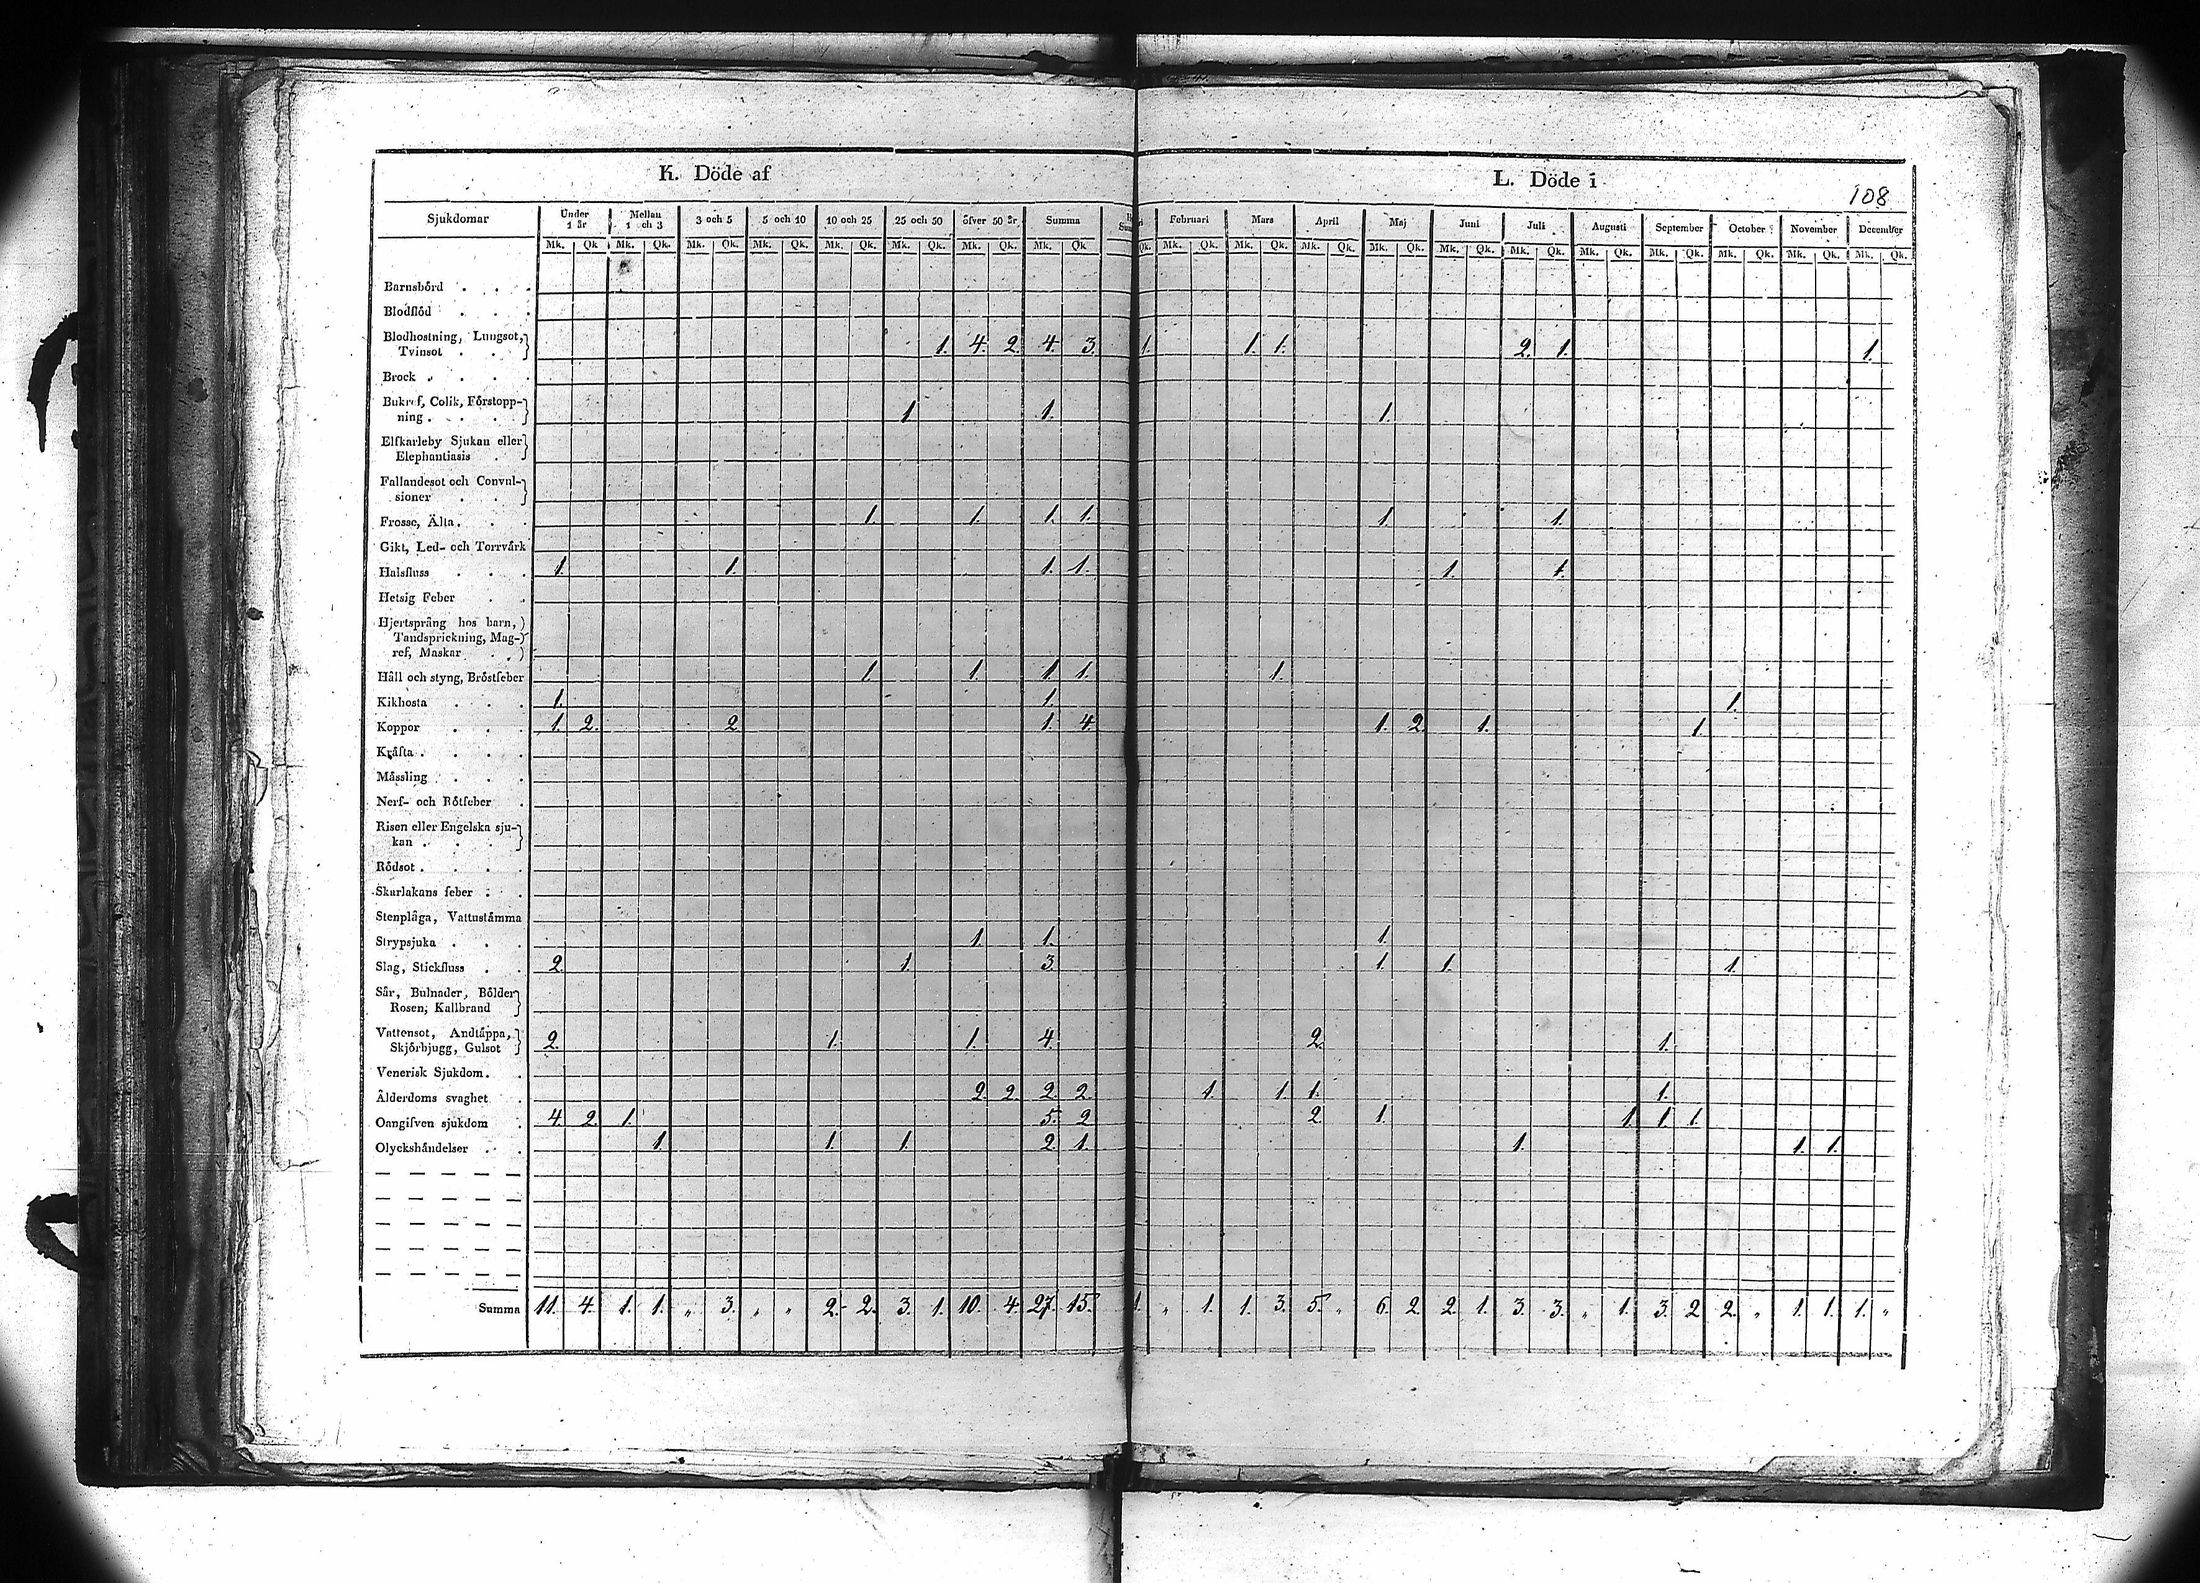 K. Döde af
L. Döde i
108
Sjukdomar Under 1 år Mellan 1 och 3 3 och 5 5 och 10 10 och 25 25 och 50 öfver 50 år Summa Februari Mars April Maj Juni Juli Augusti September October November December
Mk. Qk Mk. Qk. Mk. Qk. Mk. Qk. Mk. Qk. Mk. Qk. Mk. Qk. Mk. Qk Qk. Mk. Qk. Mk. Qk. Mk. Qk. Mk. Qk. Mk. Qk. Mk. Qk. Mk. Qk. Mk. Qk. Mk. Qk. Mk. Qk. Mk. Qk.
Barnsbörd . . .
Blodflöd . . .
Blodhostning, Lungsot,
Tvinsot . . . 1. 4. 2. 4. 3. 1. 1. 1. 2. 1. 1.
Brock . . . .
Bukref, Colik, Förstopp-
ning . . . . 1 1. 1.
Elfkarleby Sjukan eller
Elephantiasis .
Fallandesot och Convul-
sioner . .
Frosse, Älta. . . 1. 1. 1. 1. 1. 1.
Gikt, Led- och Torrvärk
Halsfluss . . . 1. 1. 1. 1. 1. 1.
Hetsig Feber . .
Hjertsprång hos barn,
Tandsprickning, Mag-
ref, Maskar . .
Håll och styng, Bröstfeber 1. 1. 1. 1. 1.
Kikhosta . . . 1. 1. 1.
Koppor . . . 1. 2. 2 1. 4. 1. 2. 1. 1.
Kräfta . . . .
Mässling . . .
Nerf- och Rötfeber .
Risen eller Engelska sju-
kan . . .
Rödsot . . . .
Skarlakans feber . .
Stenplåga, Vattustämma
Strypsjuka . . . 1. 1. 1.
Slag, Stickfluss . . 2. 1. 3. 1. 1. 1.
Sår, Bulnader, Bölder
Rosen, Kallbrand
Vattensot, Andtäppa,
Skjörbjugg, Gulsot 2. 1. 1. 4. 2. 1.
Venerisk Sjukdom. .
Ålderdoms svaghet . 2 2 2 2. 1. 1. 1. 1.
Oangifven sjukdom . 4. 2. 1. 5. 2 2. 1. 1. 1. 1.
Olyckshändelser . . 1. 1. 1. 2. 1. 1. 1. 1.
Summa 11. 4. 1. 1. „ 3. „ „ 2. 2. 3. 1. 10. 4. 27. 15. 1. „ 1. 1. 3. 5. „ 6. 2. 2. 1. 3. 3. „ 1. 3. 2 2. „ 1. 1. 1. „